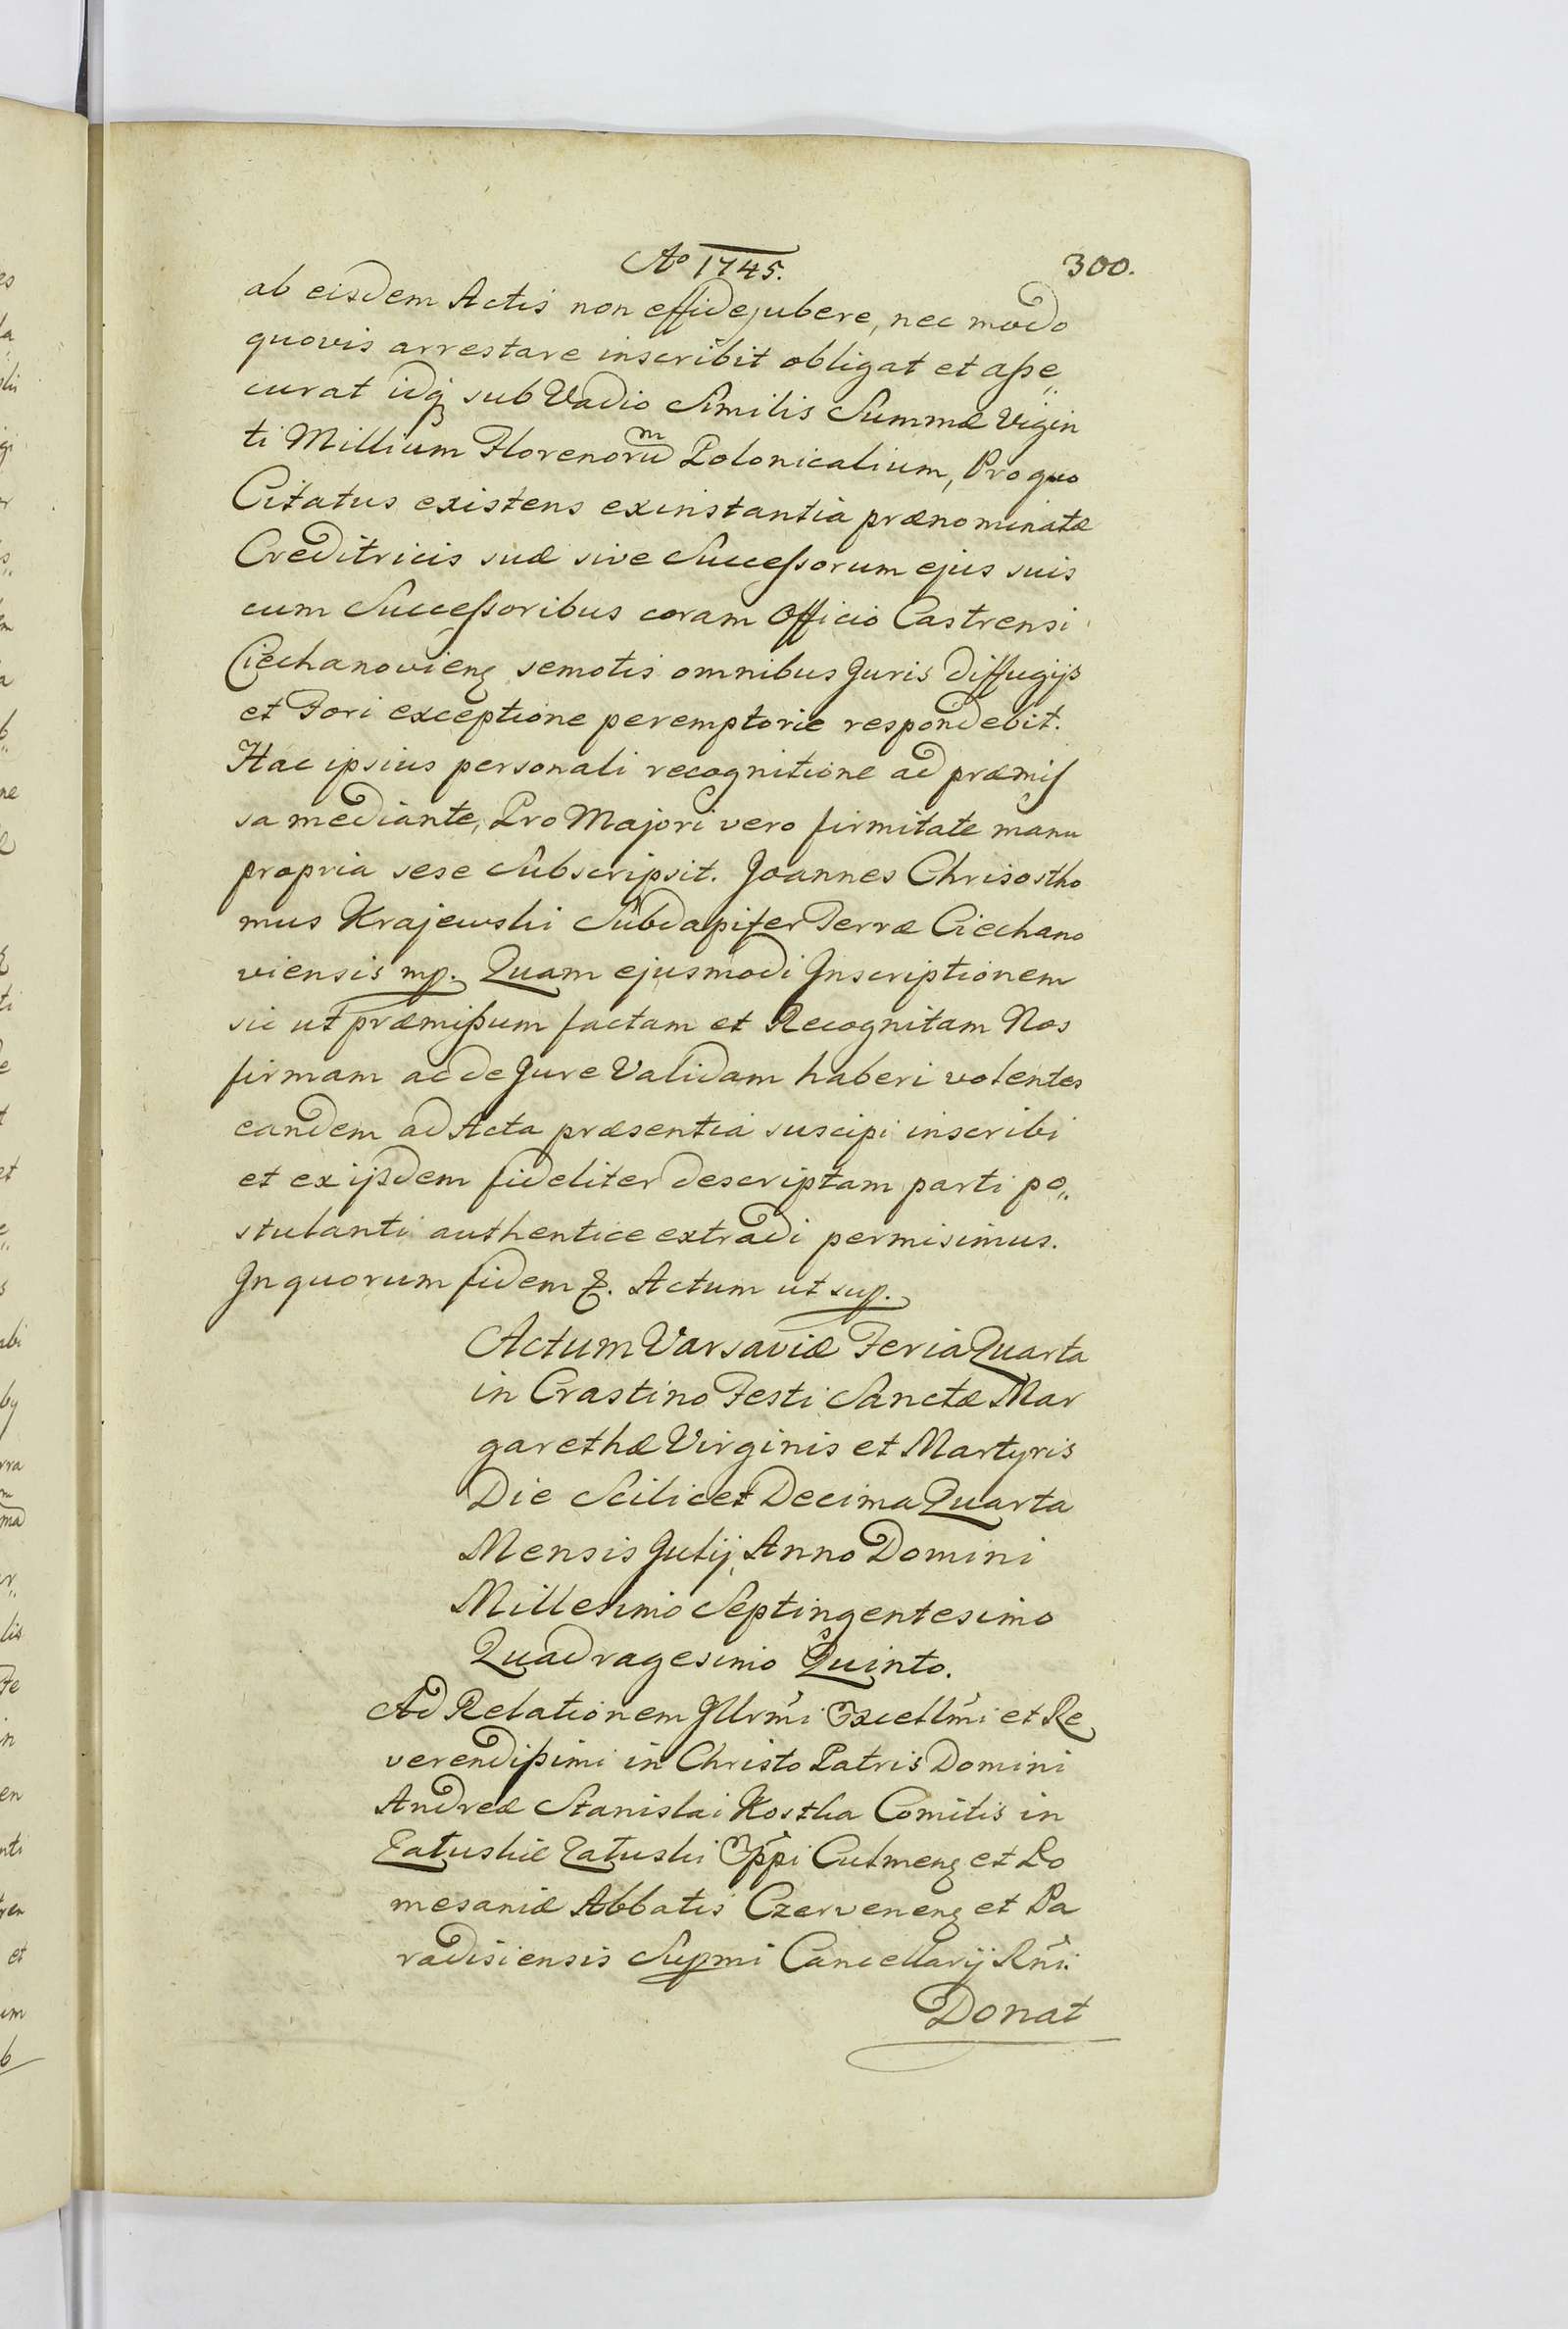 Ao 1745. 300.
ab eisdem Actis non effidejubere, nec modo
quovis arrestare inscribit obligat et aſse„
curat idq; sub Vadio Similis Summæ Vigin
ti Millium Florenorum Polonicalium, Pro quo
Citatus existens exinstantia prænominatæ
Creditricis suæ sive Succeſsorum ejus suis
cum Succeſsoribus coram Officio Castrensi
Ciechanovienz semotis omnibus Juris diffugijs
et Fori exceptione peremptorie respondebit.
Hac ipsius personali recognitione ad præmiſ
sa mediante, Pro Majori vero firmitate manu
propria sese Subscripsit. Joannes Chrisostho
mus Krajewski Subdapifer Terræ Ciechano
viensis mp. Quam ejusmodi Inscriptionem
sic ut præmiſsum factam et Recognitam Nos
firmam ac de Jure Validam haberi volentes
eandem ad Acta præsentia suscipi inscribi
et ex ijsdem fideliter descriptam parti po„
stulanti authentice extradi permisimus.
In quorum fidem &. Actum ut sup.
Actum Varsaviæ Feria Quarta
in Crastino Festi Sanctæ Mar
garethæ Virginis et Martyris
Die Scilicet Decima Quarta
Mensis Julij, Anno Domini
Millesimo Septingentesimo
Quadragesimo Quinto.
Ad Relationem Illrmi Excellmi et Re
verendiſsimi in Christo Patris Domini
Andreæ Stanislai Kostka Comitis in
Załuskie Załuski Eppi Culmenz et Po
mesaniæ Abbatis Czervenenz et Pa
radisiensis Supmi Cancellarij Rni.
Donat